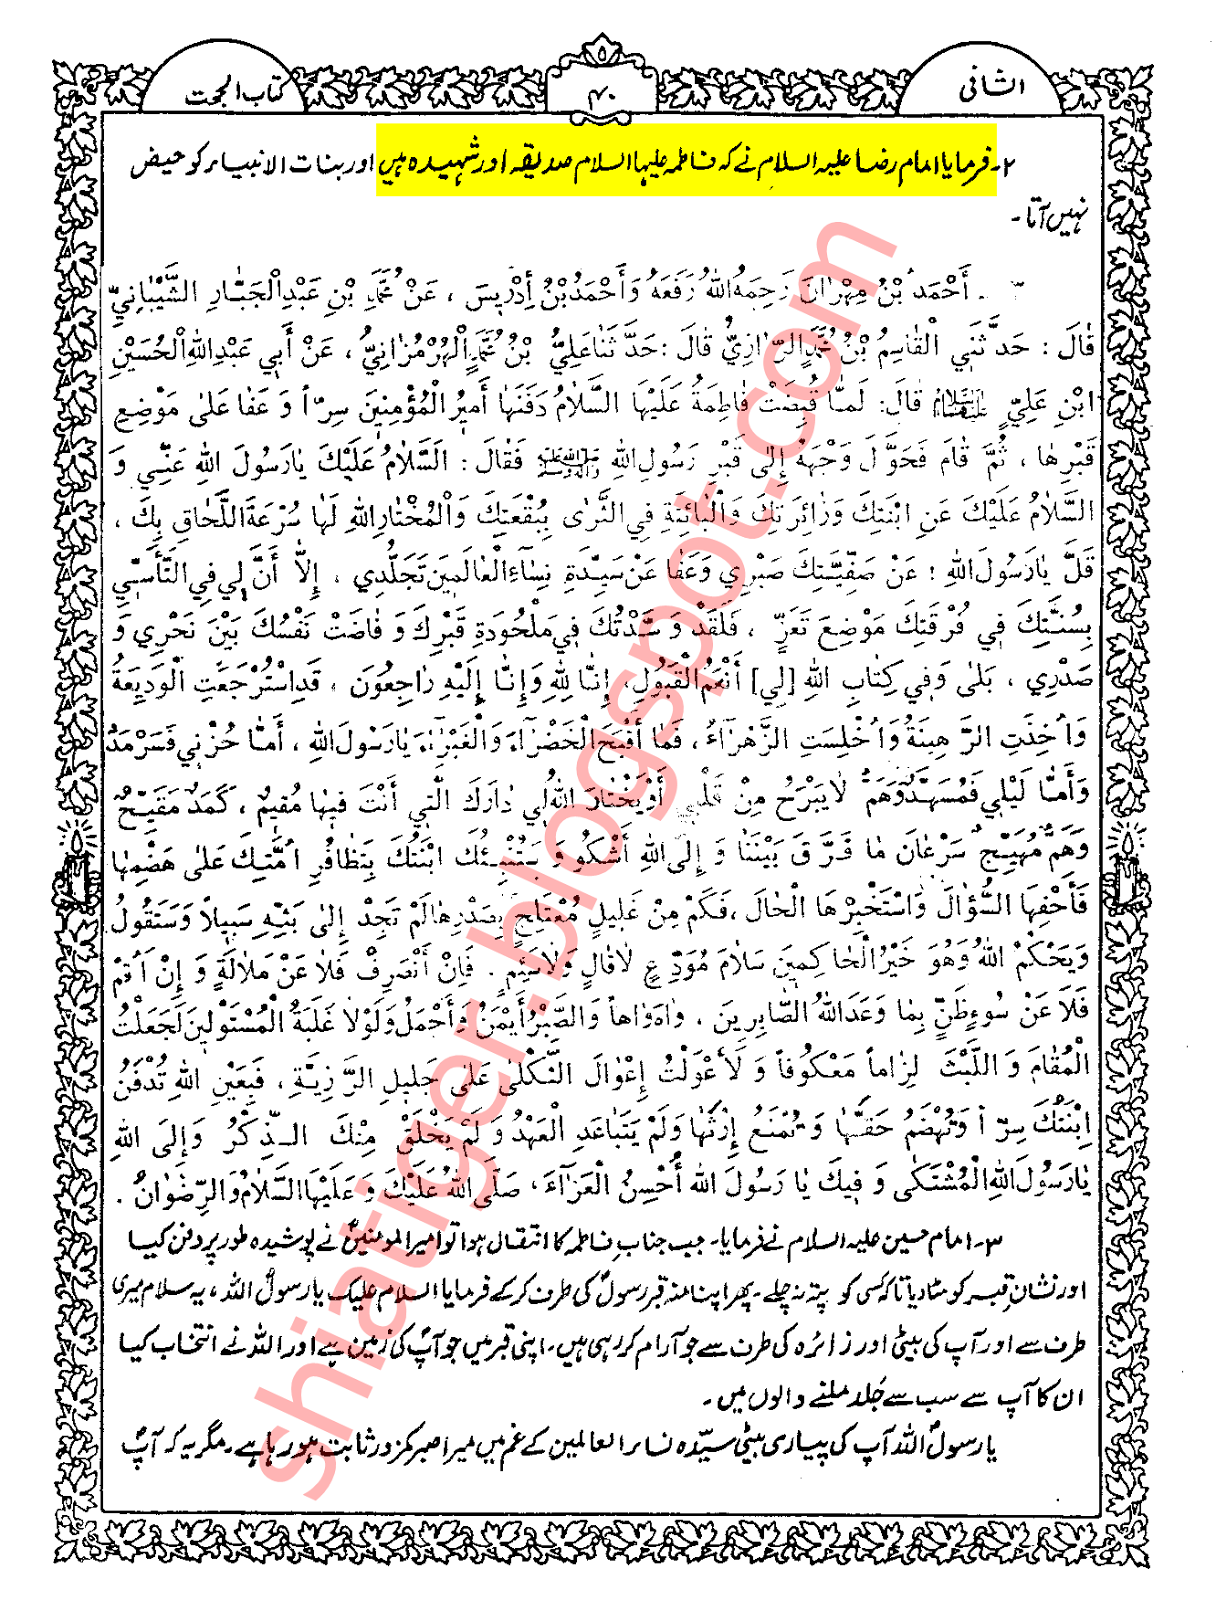 الشافی
۴۰
کتاب الحجت
۲۔ فرمایا امام رضا علیہ السلام نے کہ فاطمہ علیہا السلام صدیقہ اور شہیدہ ہیں اور بنات الانبیاء کو حیض
نہیں آتا۔
۳ - أَحْمَدُ بْنُ مِهْرَانَ رَحِمَهُ اللهُ رَفَعَهُ وَأَحْمَدُ بْنُ إِدْرِيسَ ، عَنْ مُحَمَّدِ بْنِ عَبْدِ الْجَبَّارِ الشَّيْبَانِيِّ
قَالَ : حَدَّثَنِي الْقَاسِمُ بْنُ مُحَمَّدٍ الرَّازِيُّ قَالَ : حَدَّثَنَا عَلِيُّ بْنُ مُحَمَّدٍ الْهُرْمُزَانِيُّ ، عَنْ أَبِي عَبْدِ اللهِ الْحُسَيْنِ
ابْنِ عَلِيٍّ عَلَيْهِمَا السَّلَامُ قَالَ: لَمَّا قُبِضَتْ فَاطِمَةُ عَلَيْهَا السَّلَامُ دَفَنَهَا أَمِيرُ الْمُؤْمِنِينَ سِرًّا وَ عَفَا عَلَى مَوْضِعِ
قَبْرِهَا ، ثُمَّ قَامَ فَحَوَّلَ وَجْهَهُ إِلَى قَبْرِ رَسُولِ اللهِ ﷺ فَقَالَ : السَّلَامُ عَلَيْكَ يَا رَسُولَ اللهِ عَنِّي وَ
السَّلَامُ عَلَيْكَ عَنِ ابْنَتِكَ وَزَائِرَتِكَ وَالْبَائِتَةِ فِي الثَّرَى بِبُقْعَتِكَ وَالْمُخْتَارِ اللهِ لَهَا سُرْعَةَ اللَّحَاقِ بِكَ ،
قَلَّ يَا رَسُولَ اللهِ : عَنْ صَفِيَّتِكَ صَبْرِي وَعَفَا عَنْ سَيِّدَةِ نِسَاءِ الْعَالَمِينَ تَجَلُّدِي ، إِلَّا أَنَّ لِي فِي التَّأَسِّي
بِسُنَّتِكَ فِي فُرْقَتِكَ مَوْضِعَ تَعَزٍّ ، فَلَقَدْ وَسَّدْتُكَ فِي مَلْحُودَةِ قَبْرِكَ وَ فَاضَتْ نَفْسُكَ بَيْنَ نَحْرِي وَ
صَدْرِي ، بَلَى وَفِي كِتَابِ اللهِ [لِي] أَنْعَمُ الْقَبُولِ، إِنَّا لِلهِ وَإِنَّا إِلَيْهِ رَاجِعُونَ ، قَدِ اسْتُرْجِعَتِ الْوَدِيعَةُ
وَأُخِذَتِ الرَّهِينَةُ وَأُخْلِسَتِ الزَّهْرَاءُ ، فَمَا أَقْبَحَ الْخَضْرَاءَ وَالْغَبْرَاءَ يَا رَسُولَ اللهِ ، أَمَّا حُزْنِي فَسَرْمَدٌ
وَأَمَّا لَيْلِي فَمُسَهَّدٌ وَهَمٌّ لَا يَبْرَحُ مِنْ قَلْبِي أَوْ يَخْتَارَ اللهُ لِي دَارَكَ الَّتِي أَنْتَ فِيهَا مُقِيمٌ ، كَمَدٌ مُقَيِّحٌ
وَهَمٌّ مُهَيِّجٌ سَرْعَانَ مَا فَرَّقَ بَيْنَنَا وَ إِلَى اللهِ أَشْكُو وَ سَتُنْبِئُكَ ابْنَتُكَ بِتَظَافُرِ أُمَّتِكَ عَلَى هَضْمِهَا
فَأَحْفِهَا السُّؤَالَ وَاسْتَخْبِرْهَا الْحَالَ ، فَكَمْ مِنْ غَلِيلٍ مُعْتَلِجٍ بِصَدْرِهَا لَمْ تَجِدْ إِلَى بَثِّهِ سَبِيلًا وَسَتَقُولُ
وَيَحْكُمُ اللهُ وَهُوَ خَيْرُ الْحَاكِمِينَ سَلَامَ مُوَدِّعٍ لَا قَالٍ وَلَا سَئِمٍ . فَإِنْ أَنْصَرِفْ فَلَا عَنْ مَلَالَةٍ وَ إِنْ أُقِمْ
فَلَا عَنْ سُوءِ ظَنٍّ بِمَا وَعَدَ اللهُ الصَّابِرِينَ ، وَاهَ وَاهاً وَالصَّبْرُ أَيْمَنُ وَأَجْمَلُ وَلَوْلَا غَلَبَةُ الْمُسْتَوْلِينَ لَجَعَلْتُ
الْمُقَامَ وَ اللَّبْثَ لِزَاماً مَعْكُوفاً وَ لَأَعْوَلْتُ إِعْوَالَ الثَّكْلَى عَلَى جَلِيلِ الرَّزِيَّةِ ، فَبِعَيْنِ اللهِ تُدْفَنُ
ابْنَتُكَ سِرًّا وَتُهْضَمُ حَقَّهَا وَ تُمْنَعُ إِرْثَهَا وَلَمْ يَتَبَاعَدِ الْعَهْدُ وَ لَمْ يَخْلَقْ مِنْكَ الذِّكْرُ وَإِلَى اللهِ
يَا رَسُولَ اللهِ الْمُشْتَكَى وَ فِيكَ يَا رَسُولَ اللهِ أَحْسَنُ الْعَزَاءِ، صَلَّى اللهُ عَلَيْكَ وَ عَلَيْهَا السَّلَامُ وَالرِّضْوَانُ .
۳۔ امام حسین علیہ السلام نے فرمایا۔ جب جناب فاطمہ کا انتقال ہوا تو امیرالمومنینؑ نے پوشیدہ طور پر دفن کیا
اور نشانِ قبر کو مٹا دیا تاکہ کسی کو پتہ نہ چلے۔ پھر اپنا منہ قبر رسولؐ کی طرف کر کے فرمایا السلام علیک یا رسولؐ اللہ، یہ سلام میری
طرف سے اور آپ کی بیٹی اور زائرہ کی طرف سے جو آرام کر رہی ہیں۔ اپنی قبر میں جو آپؐ کی زمین ہے اور اللہ نے انتخاب کیا
ان کا آپ سے سب سے جلد ملنے والوں میں۔
یا رسولؐ اللہ آپ کی پیاری بیٹی سیّدہ نساء العالمین کے غم میں میرا صبر کمزور ثابت ہو رہا ہے۔ مگر یہ کہ آپؐ
shiatiger.blogspot.com